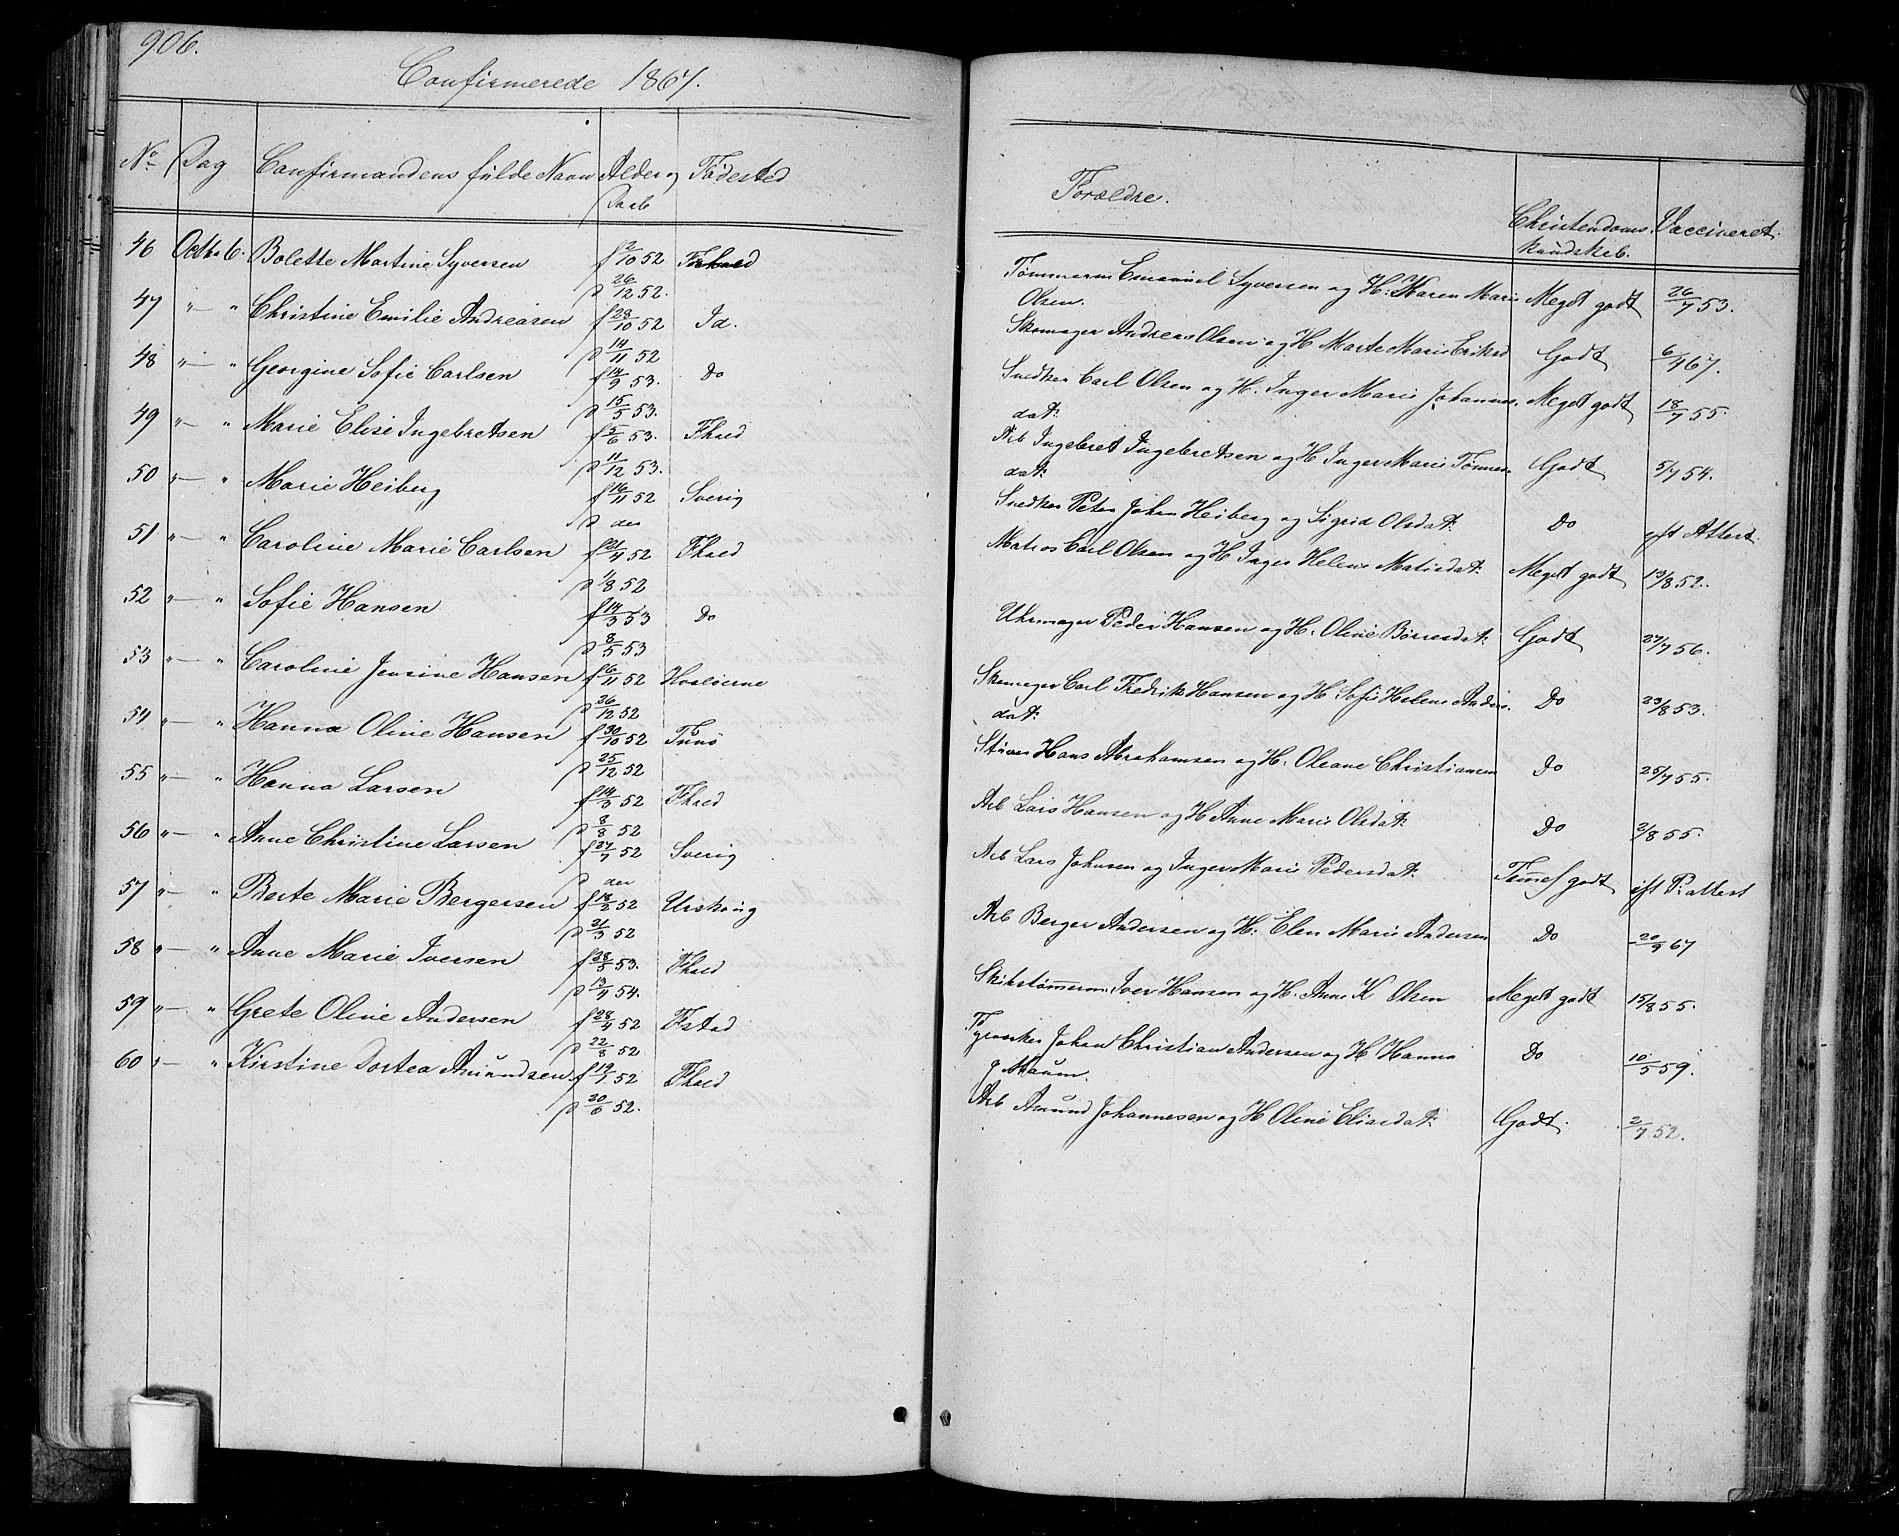 906.
Confirmerede 1867.
No Dag Confirmandens fulde Navn Alder og Daab Fødested Forældre. Christendoms kundskab. Vaccineret.
46 Octb. 6. Bolette Martine Syversen f 2/10 52 Frhald Tømmerm Emanuel Syversen og H: Karen Marie Meget godt 26/7 53.
d 26/12 52. Olsen.
47 " — " Christine Emilie Andreasen f 28/10 52 Id. Skomager Andreas Olsen og H Marte Marie Eriksd Godt 6/4 67.
d 14/11 52
48 " — " Georgine Sofie Carlsen f 14/9 53. Do Snedker Carl Olsen og H. Inger Marie Johannes. Meget godt 18/7 55.
d 15/5 53. dat:
49 " — " Marie Elise Ingebretsen f 5/6 53. Fhald Arb Ingebret Ingebretsen og H Inger Marie Tønnes Godt 5/7 54.
d 11/12 53. dat:
50 " — " Marie Heiberg f 16/11 52 Sverig Snedker Peter Johan Heiberg og Sigrid Olsdat: Do eft Attest.
d der
51 " — " Caroline Marie Carlsen f 21/4 52 Fhald Matros Carl Olsen og H Inger Helene Matisdat: Meget godt 13/8 52.
d 1/8 52
52 " — " Sofie Hansen f 14/3 53 Do Uhrmager Peder Hansen og H. Oline Børresdat: Godt 27/7 56.
d 8/5 53
53 " — " Caroline Jensine Hansen f 6/11 52 Hvaløerne Skomager Carl Fredrik Hansen og H Sofie Helene Anders. Do 23/8 53.
d 26/12 52 dat:
54 " — " Hanna Oline Hansen f 30/10 52 Tunø Stuer Hans Abrahamsen og H. Oleane Christiansen Do 25/7 55.
d 25/12 52
55 " — " Hanna Larsen f 14/3 52 Fhald Arb Lars Hansen og H Anne Marie Olsdat: Do 2/8 55.
d 8/8 52
56 " — " Anne Christine Larsen f 27/7 52 Sverig Arb Lars Johnsen og Inger Marie Pedersdat: Temel godt eft P: attest
d der
57 " — " Berte Marie Bergersen f 18/2 52 Urskoug Arb Berger Andersen og H: Elen Marie Andersen Do 20/9 67
d 21/3 52
58 " — " Anne Marie Iversen f 28/5 53. Fhald Skibstømmerm. Iver Hansen og H. Anne K Olsen Meget godt 15/8 55.
d 13/4 54.
59 " — " Grete Oline Andersen f 28/4 52 Fstad Fyrvogter Johan Christian Andersen og H Hanna Do 10/5 59.
d 22/8 52
60 " — " Kirstine Dortea Amundsen f 19/1 52 Fhald Arb Amund Johannesen og H Oline Eliasdat: Godt. 2/7 52.
d 20/6 52.